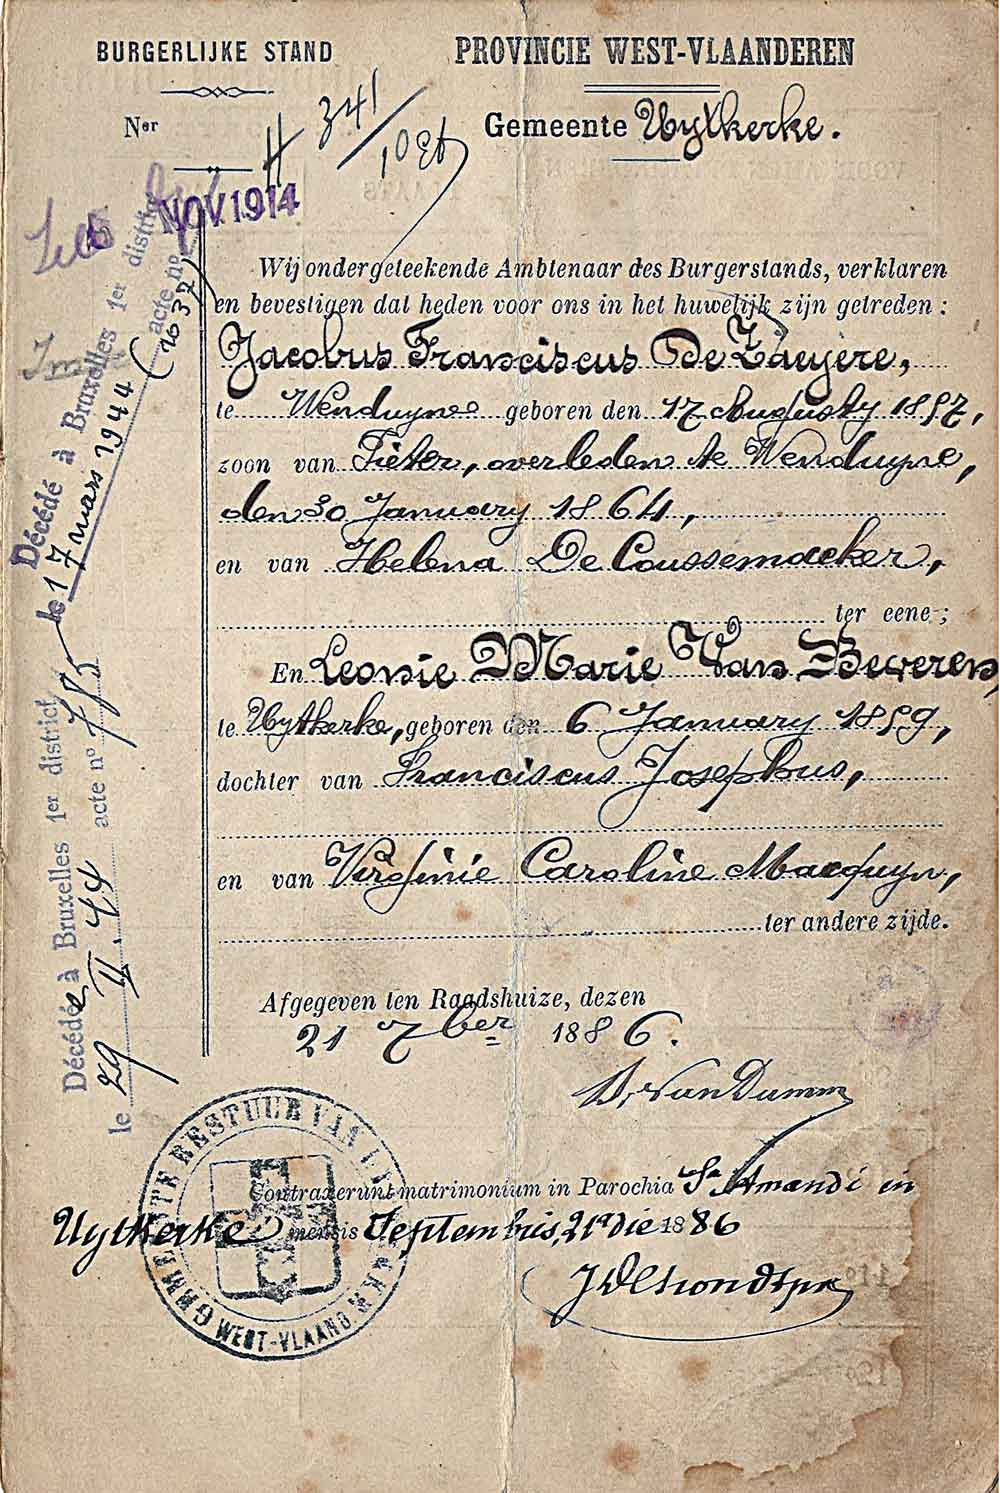 BURGERLIJKE STAND
PROVINCIE WEST-VLAANDEREN
Ner
341
Gemeente Uytkerke.
NOV. 1914
Wij ondergeteekende Ambtenaar des Burgerstands, verklaren
en bevestigen dat heden voor ons in het huwelijk zijn getreden :
Jacobus Franciscus De Zuyere,
te Wenduyne geboren den 17 Augusty 1857,
zoon van Pieter, overleden te Wenduyne,
den 30 January 1864,
en van Helena De Coussemaeker,
ter eene;
En Leonie Marie Van Beveren,
te Uytkerke, geboren den 6 January 1859,
dochter van Franciscus Josephus,
en van Virginie Caroline Macquyn,
ter andere zijde.
Afgegeven ten Raadshuize, dezen
21 7ber 1886.
Contraxerunt matrimonium in Parochia Sti Amandi in
Uytkerke mensis Septembris, 21a die 1886
GEMEENTE BESTUUR VAN UYTKERKE
WEST-VLAAND.
Décédé à Bruxelles 1er district
le 17 mars 1944 acte no 1637
Décédée à Bruxelles 1er district
le 29 II. 44 acte no 785